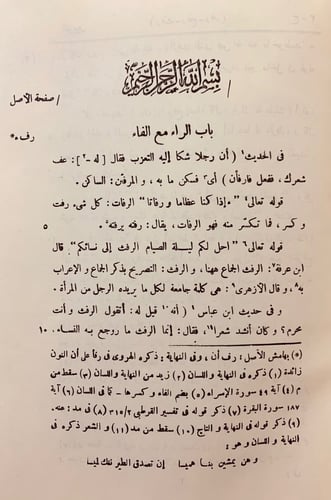 بسم الله الرحمن الرحيم
/ صفحة الأصل
باب الراء مع الفاء
رف ء*
فى الحديث١ ( أن رجلا شكا إليه التعزب فقال [ له -٢ ]: عف
شعرك، ففعل فارفأن ) أى٣ فسكن ما به ، و المرفئن: الساكن.
قوله تعالى٤ " ءاذا كنا عظاما و رفاتا " الرفات: كل شىء رفت
و كسر ، فما تكسّر منه فهو الرفات، يقال: رفته يرفته٥. ٥
قوله تعالى٦ " احل لكم ليلة الصيام الرفث إلى نسائكم " قال
ابن عرفة٧: الرفث الجماع ههنا ، و الرفث: التصريح بذكر الجماع و الإعراب
به٨، و قال الأزهرى٩: هى كلمة جامعة لكل ما يريده الرجل من المرأة.
و فى حديث ابن عباس ( أنه١٠ قيل له: أتقول الرفث و أنت
محرم؟ و كان أنشد شعرا١١، فقال: إنما الرفث ما روجع به النساء. ١٠
(*) بهامش الأصل: رف أن ، وفى النهاية : ذكره الهروى فى رفأ على أن النون
زائدة (١) ذكره فى النهاية و اللسان (٢) زيد من النهاية و اللسان (٣) سقط من
م (٤) آية ٤٩ سورة الإسراء (٥) بضم الفاء و كسرها - كما فى اللسان (٦) آية
١٨٧ سورة البقرة (٧) ذكر قوله فى تفسير القرطبى ٢/٣١٥ (٨) فى مد: عنه.
(٩) ذكر قوله فى النهاية و التاج (١٠) سقط من مد (١١) و الشعر ذكره فى
النهاية و اللسان و هو :
و هن يمشين بنا هميسا إن تصدق الطير ننك لميسا